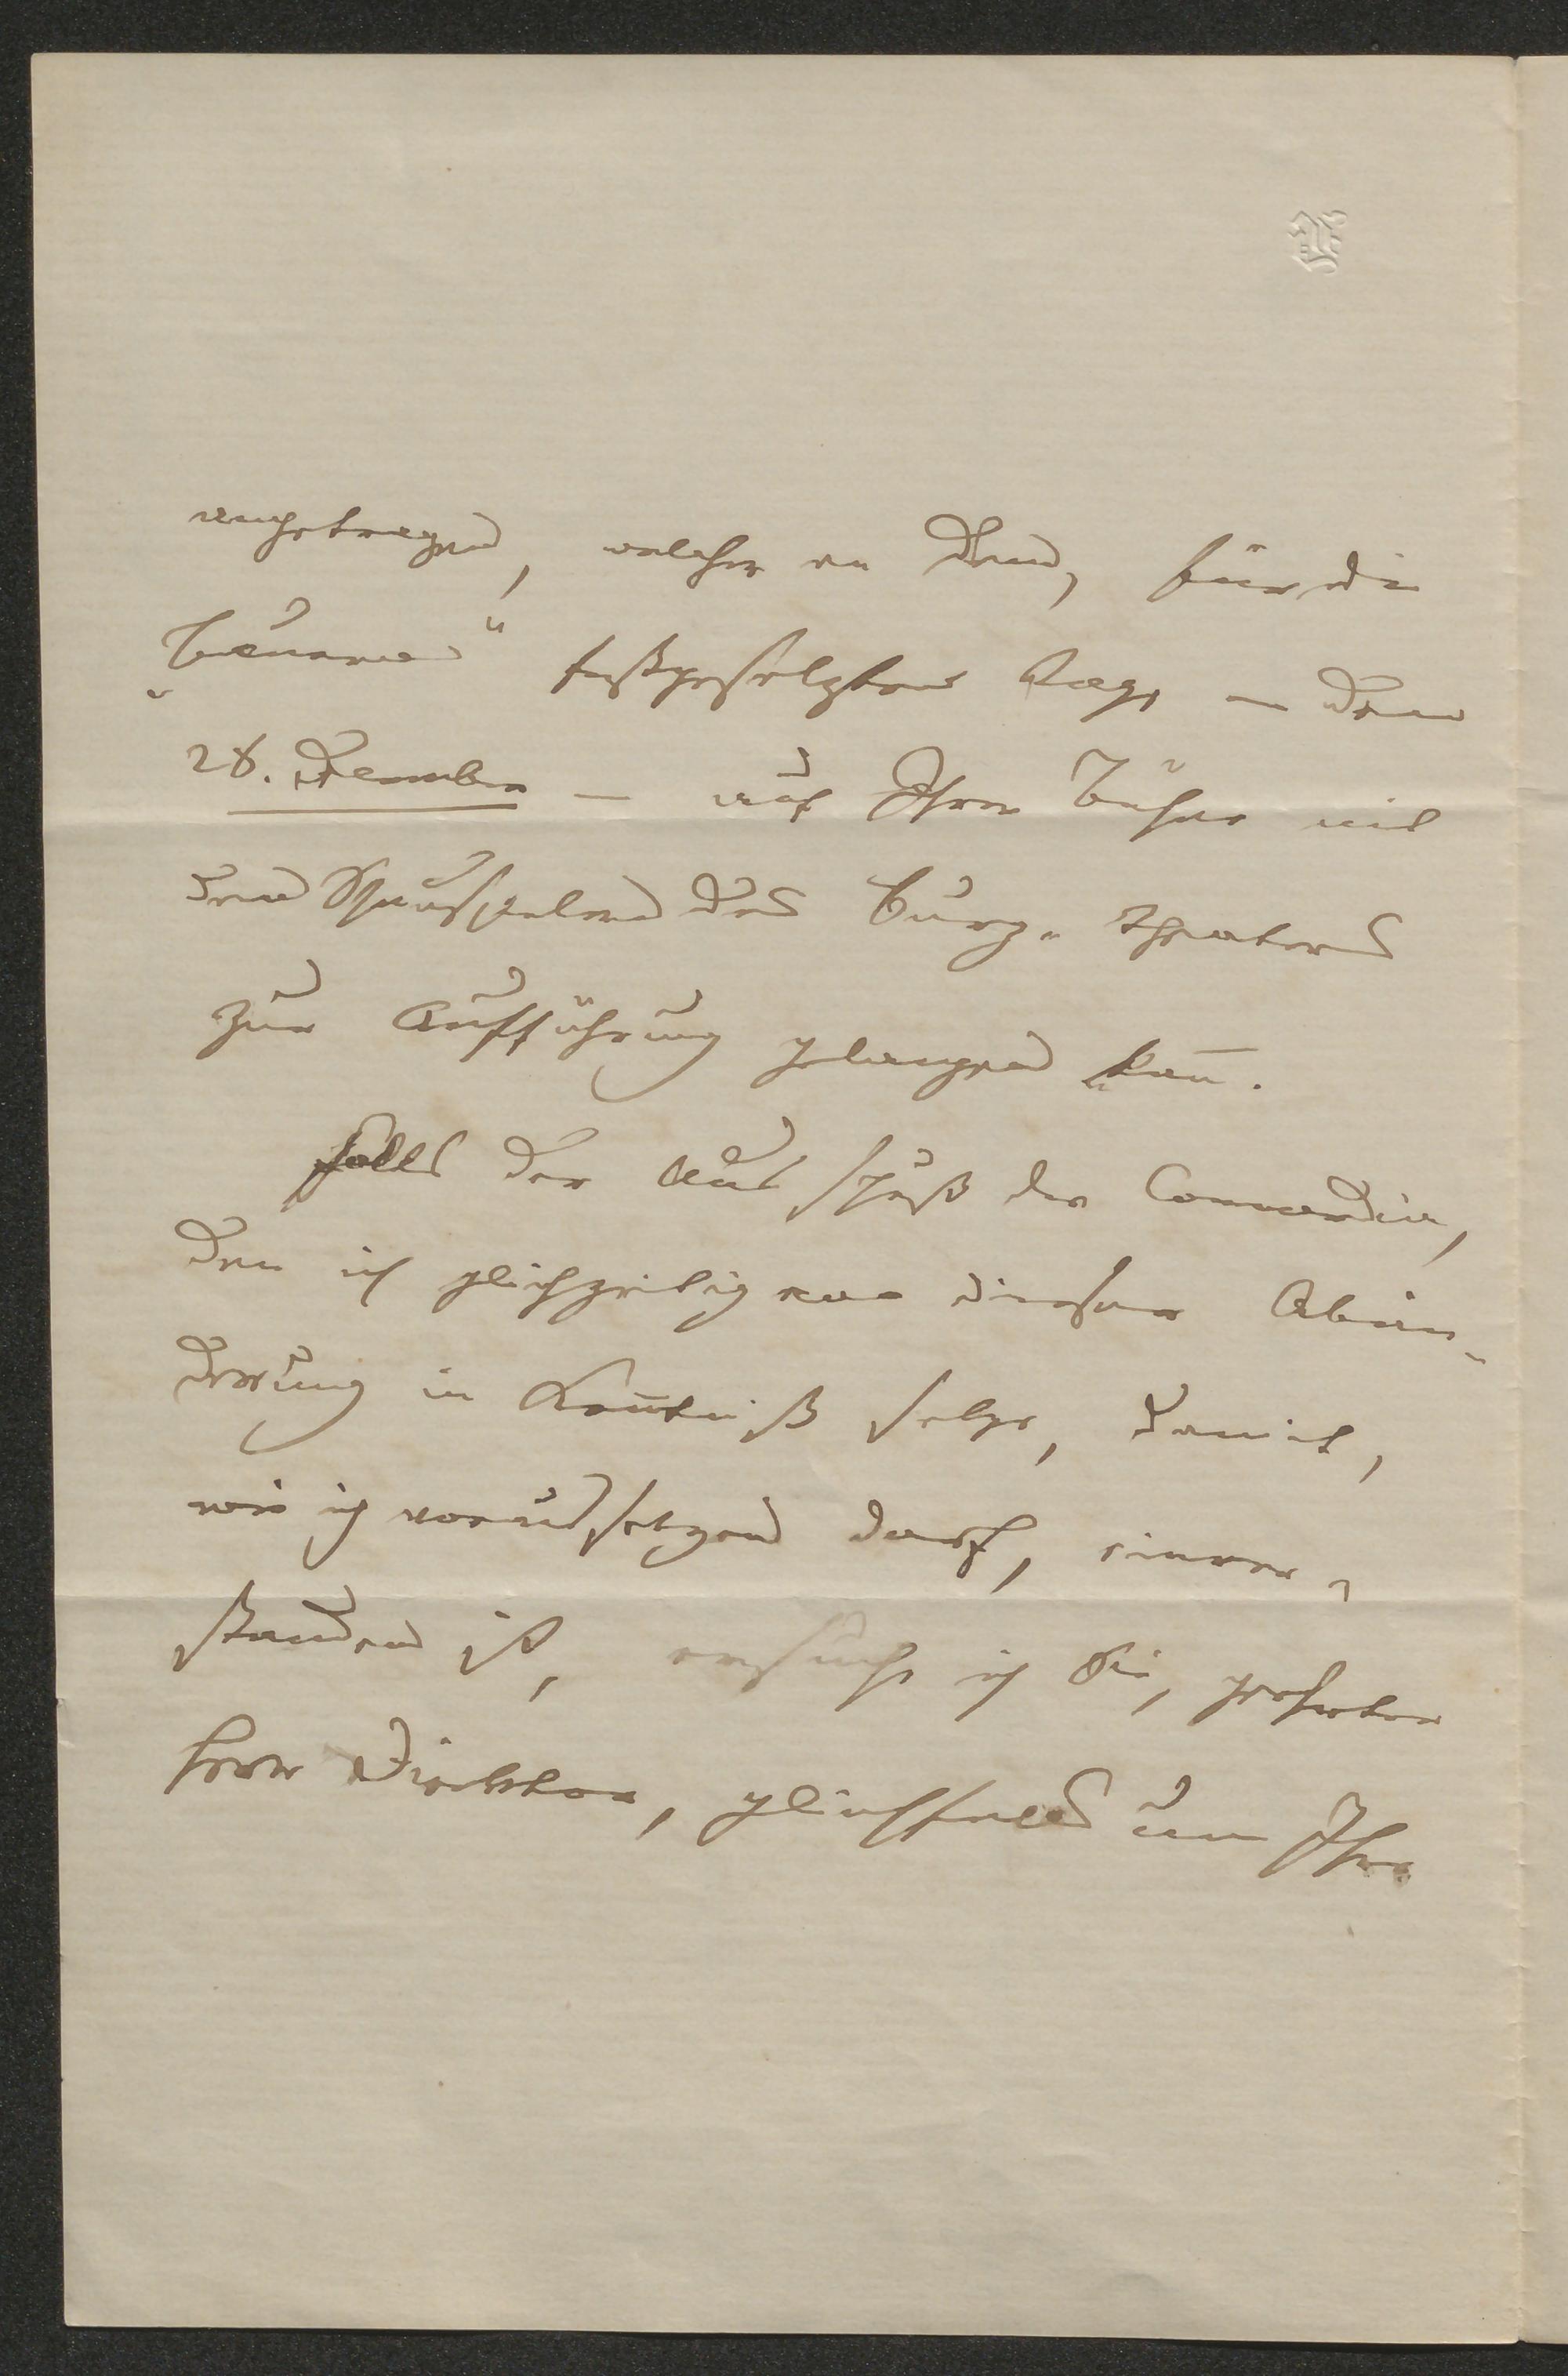 angetragen, welcher an dem, für die
„Bänaren“ festgesetzten Tage – dem
28. Dezember – auf Ihrer Bühne mit
den Schauspielern des Burg-Theaters
zur Aufführung gelangen kan̄.
Falls der Ausschuß der Concordia,
den ich gleichzeitig von dieser Abän-
derung in Ken̄tniß setze, damit,
wie ich voraussetzen darf, einver-
standen ist, ersuche ich Sie, geehrter
Herr Direktor, gleichfalls um Ihre